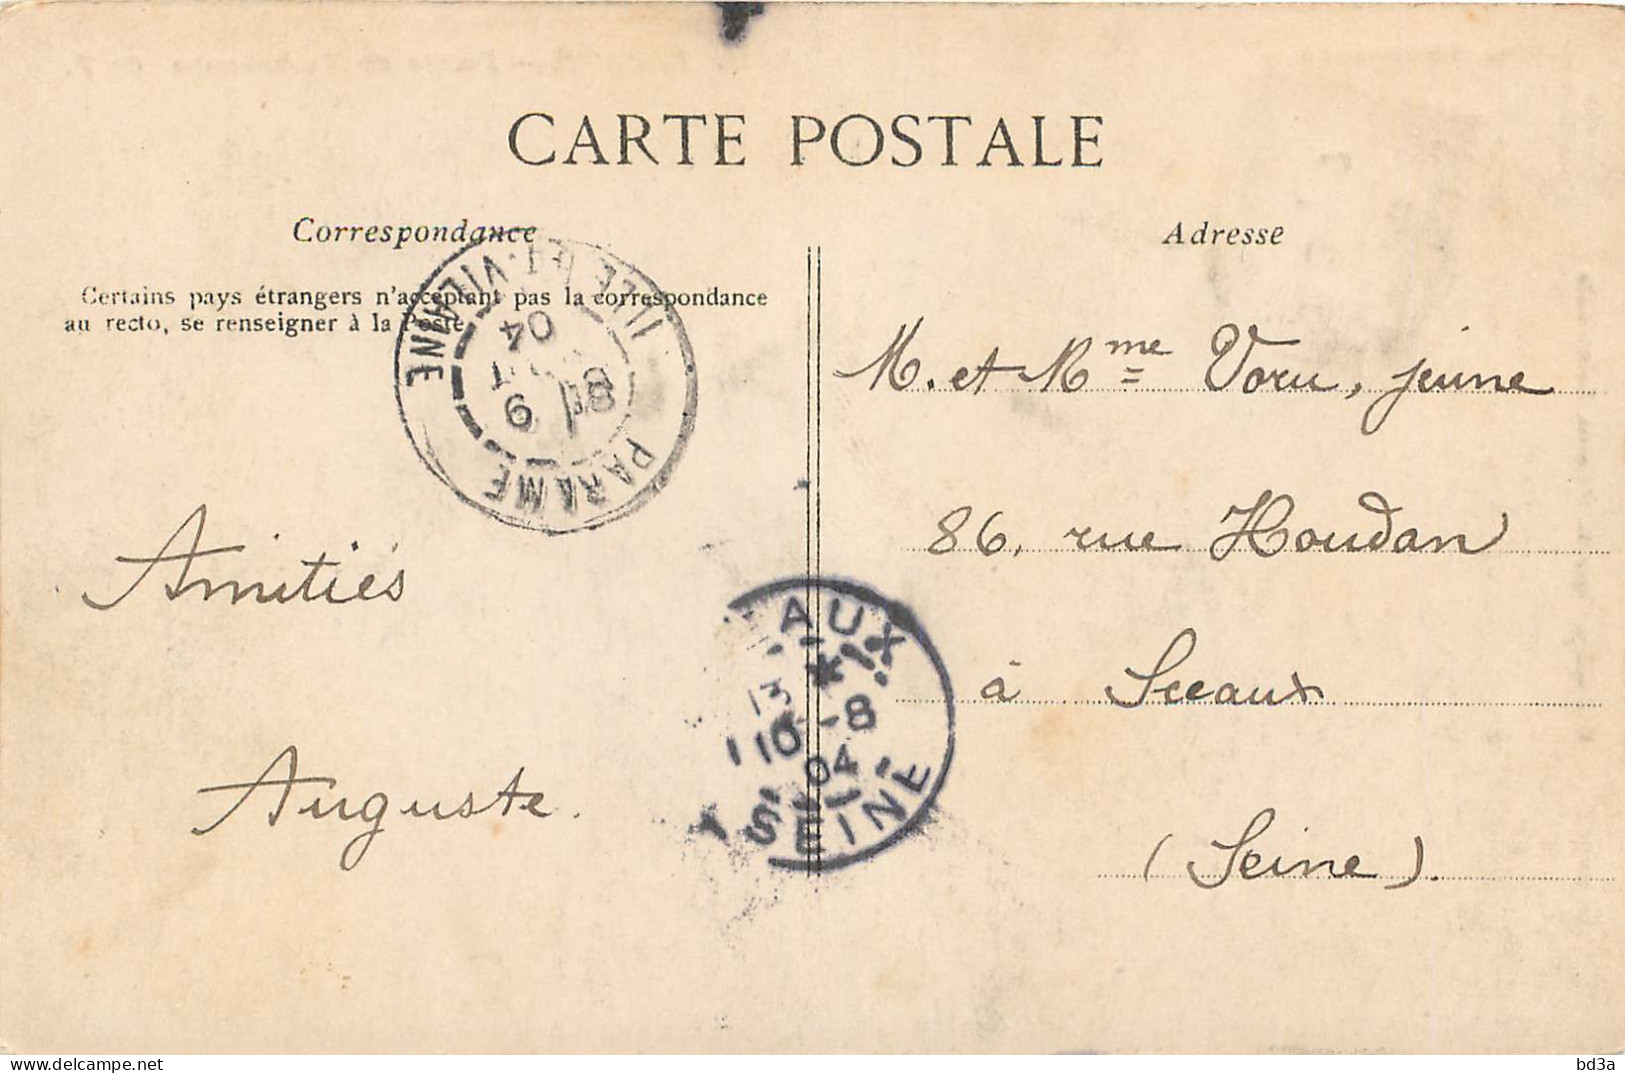 CARTE POSTALE
Correspondance
Certains pays étrangers n'acceptent pas la correspondance
au recto, se renseigner à la Poste
Adresse
ILLE-ET-VILAINE
04
9
PARAMÉ
M. et Mme Voru, jeune
86, rue Houdan
à Sceaux
(Seine).
Amitiés
Auguste.
EAUX
13
10-8
04
SEINE
bd3a